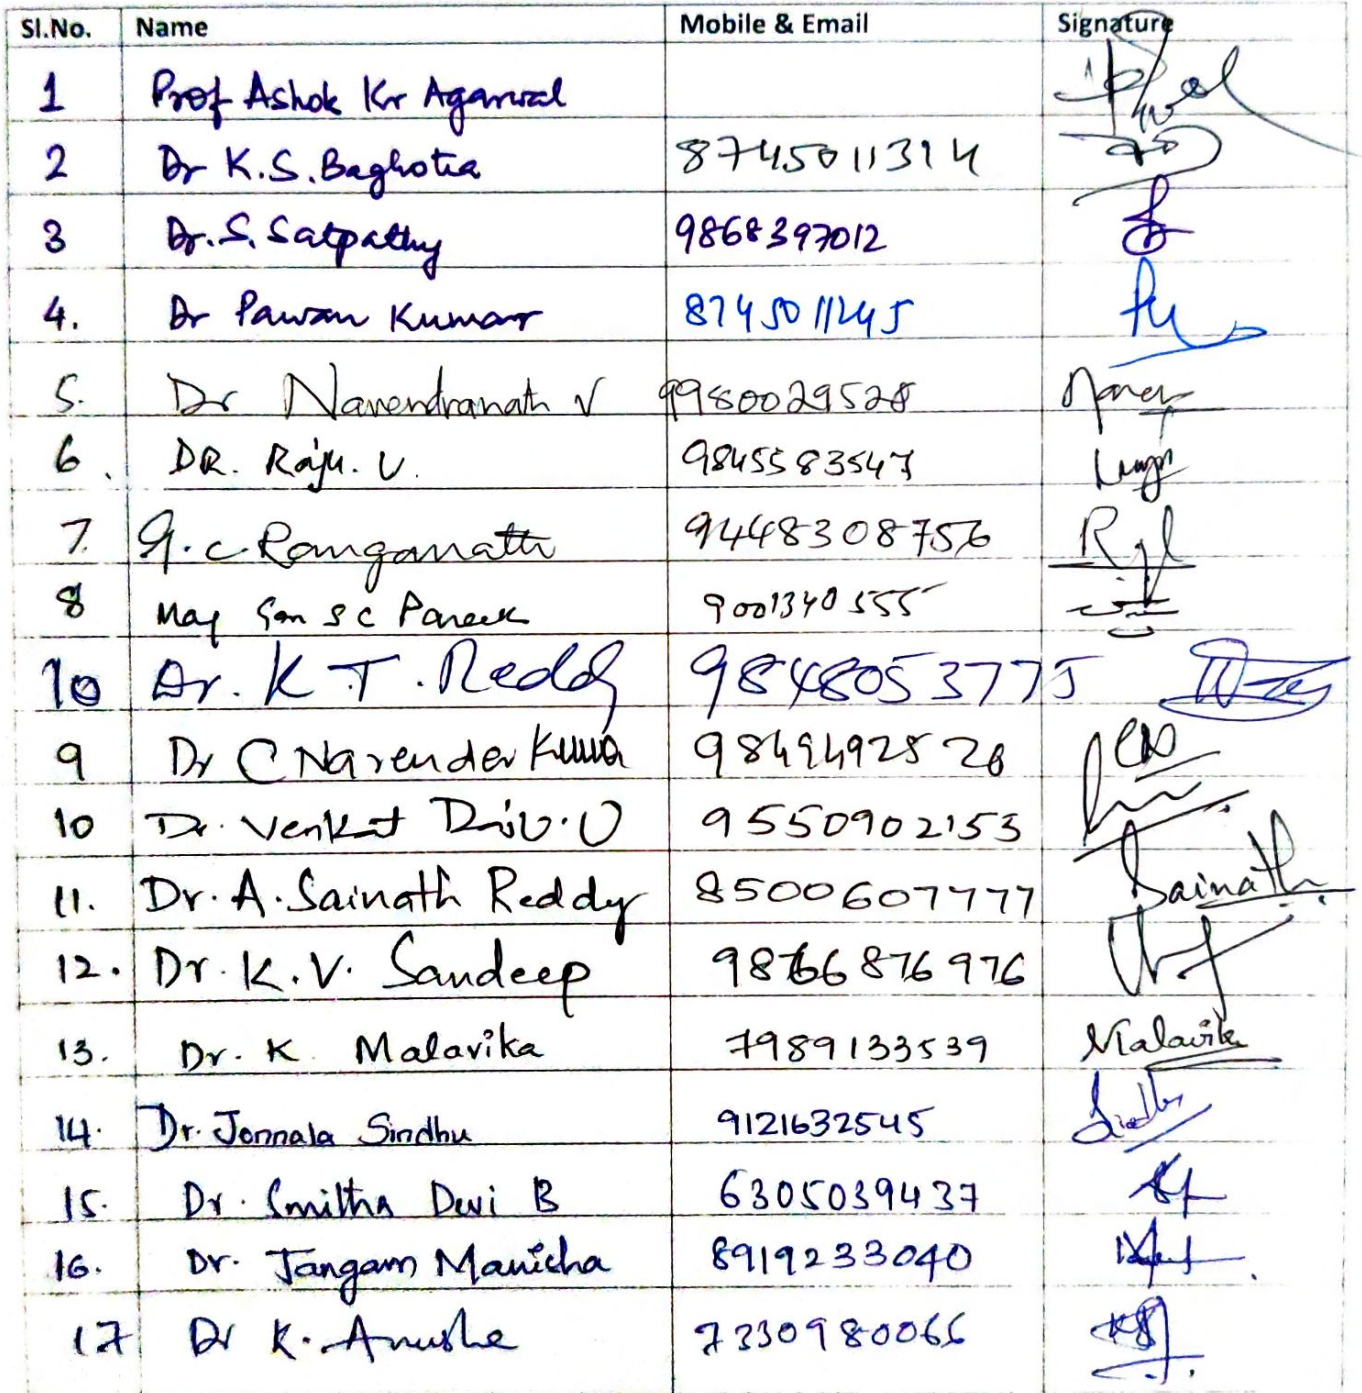 Sl.No. Name Mobile & Email Signature
1 Prof Ashok Kr Agarwal
2 Dr K.S. Baghotia 8745011314
3 Dr. S. Satpathy 9868397012
4. Dr Pawan Kumar 8745011245
5. Dr Narendranath V 9980029528
6. DR. Raju. U. 9845583547
7. G.C. Ranganath 9448308756
8 Maj Gen S C Pareek 9001340555
10 Dr. K.T. Reddy 9848053775
9 Dr C Narender Kuma 9849492528
10 Dr. Venkat 9550902153
11. Dr. A. Sainath Reddy 8500607777 Sainath
12. Dr. K.V. Sandeep 9876876976
13. Dr. K Malavika 7989133539 Malavika
14. Dr. Jonnala Sindhu 9121632545
15. Dr. Smitha Devi B 6305039437
16. Dr. Jangam Manisha 8919233040
17 Dr K. Anusha 7330980066